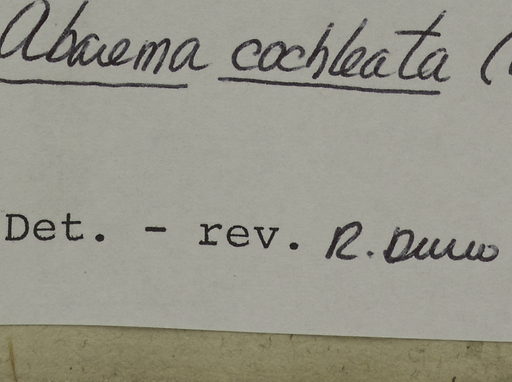 Abarema cochleata (
Det. - rev. R.